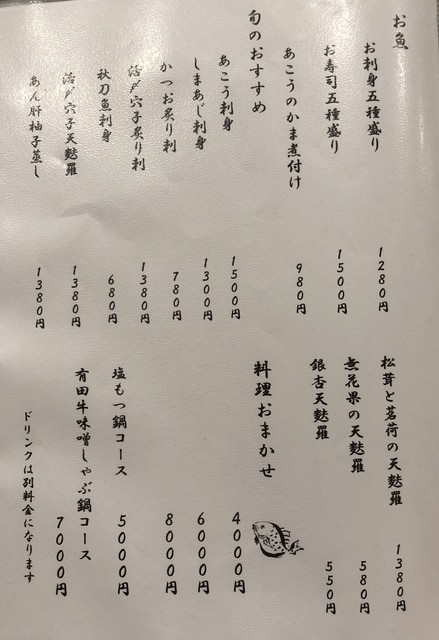 お魚
お刺身五種盛り 1280円
お寿司五種盛り 1500円
あこうのかま煮付け 980円
旬のおすすめ
あこう刺身 1500円
しまあじ刺身 1300円
かつお炙り刺 780円
活〆穴子炙り刺 1380円
秋刀魚刺身 680円
活〆穴子天麩羅 1380円
あん肝柚子蒸し 1380円
松茸と茗荷の天麩羅 1380円
無花果の天麩羅 580円
銀杏天麩羅 550円
料理おまかせ
4000円
6000円
8000円
塩もつ鍋コース 5000円
有田牛味噌しゃぶ鍋コース 7000円
ドリンクは別料金になります